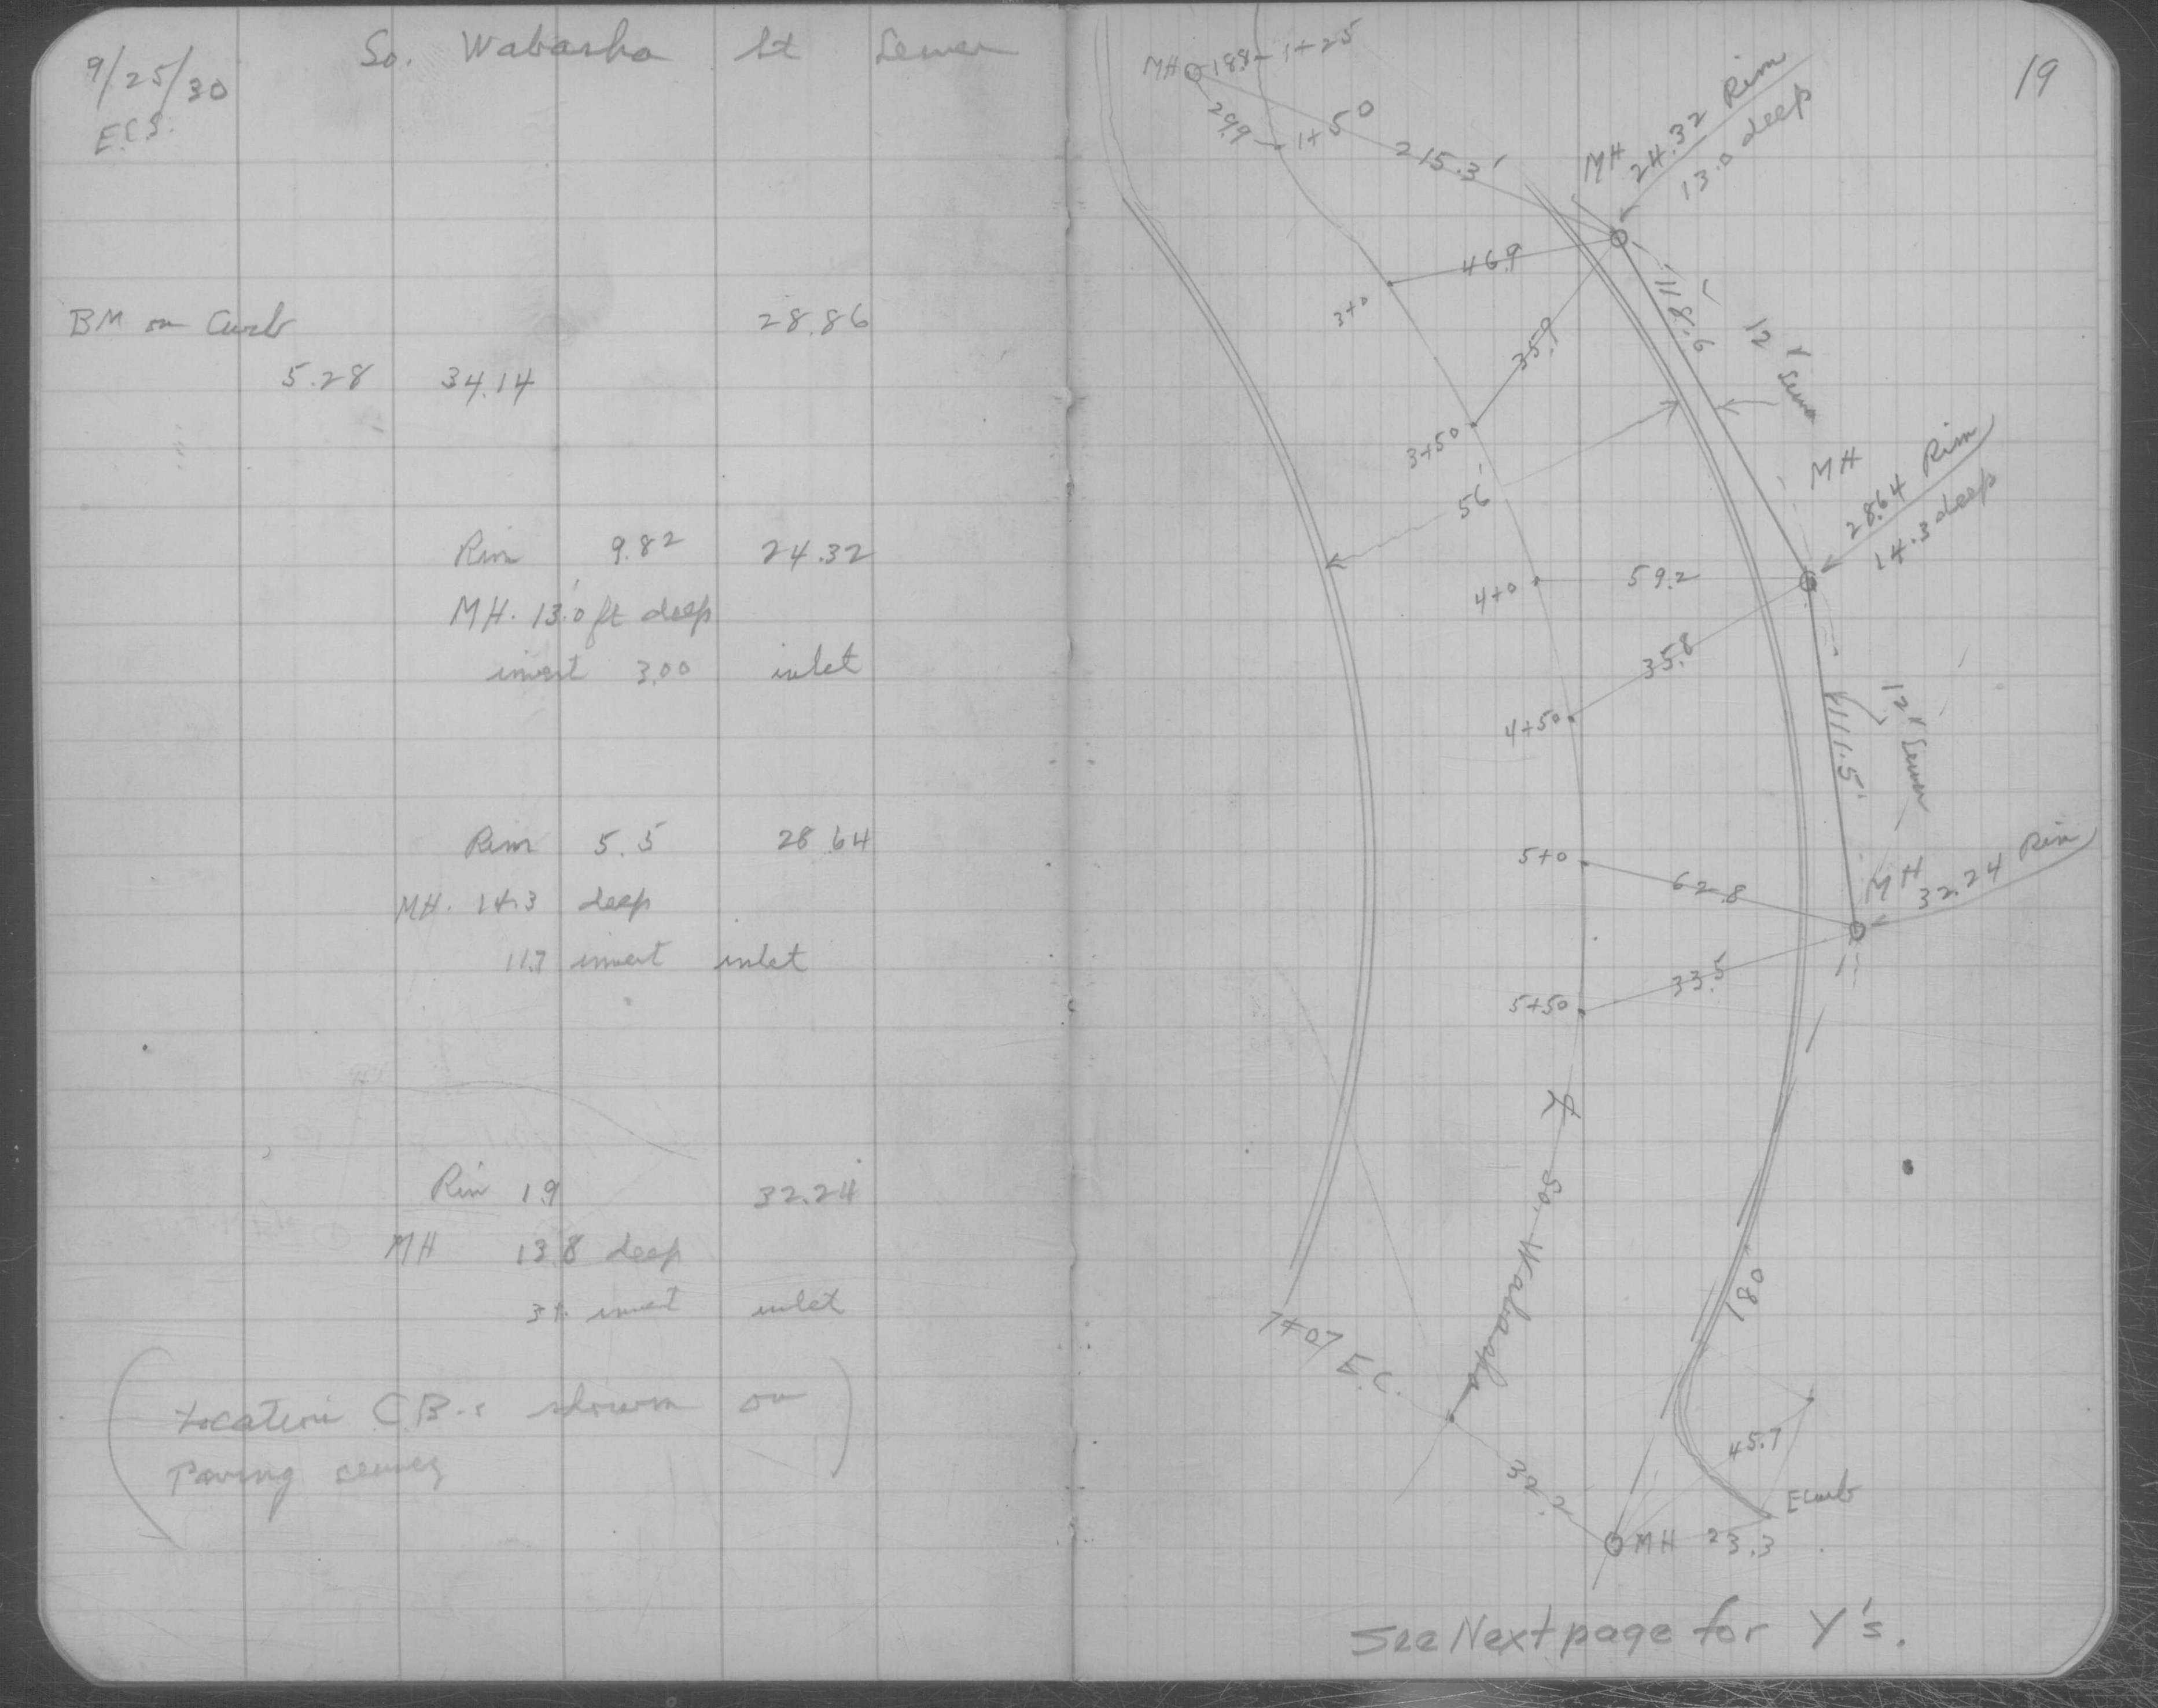 9/25/30
E.C.S.
So. Wabasha St Sewer
BM on Curb 28.86
5.28 34.14
Rim 9.82 24.32
MH. 13.0 ft deep
invert 3.00 inlet
Rim 5.5 28.64
MH. 14.3 deep
11.7 invert inlet
Rim 1.9 32.24
MH 13.8 deep
invert inlet
(Location C.B.s shown on
Paving survey)
19
MH 18.8 1+25
29.9 1+50
215.3'
MH 24.32 Rim
13.0 deep
46.9
3+0
118.6'
12" Sewer
35.9
3+50
56'
MH
28.64 Rim
14.3 deep
59.2
4+0
35.8
4+50
111.5'
12" Sewer
5+0
62.8
MH 32.24 Rim
33.5
5+50
So. Wabasha
180
7+07 E.C.
45.7
32.2
E Curb
MH 23.3
See Next page for Y's.